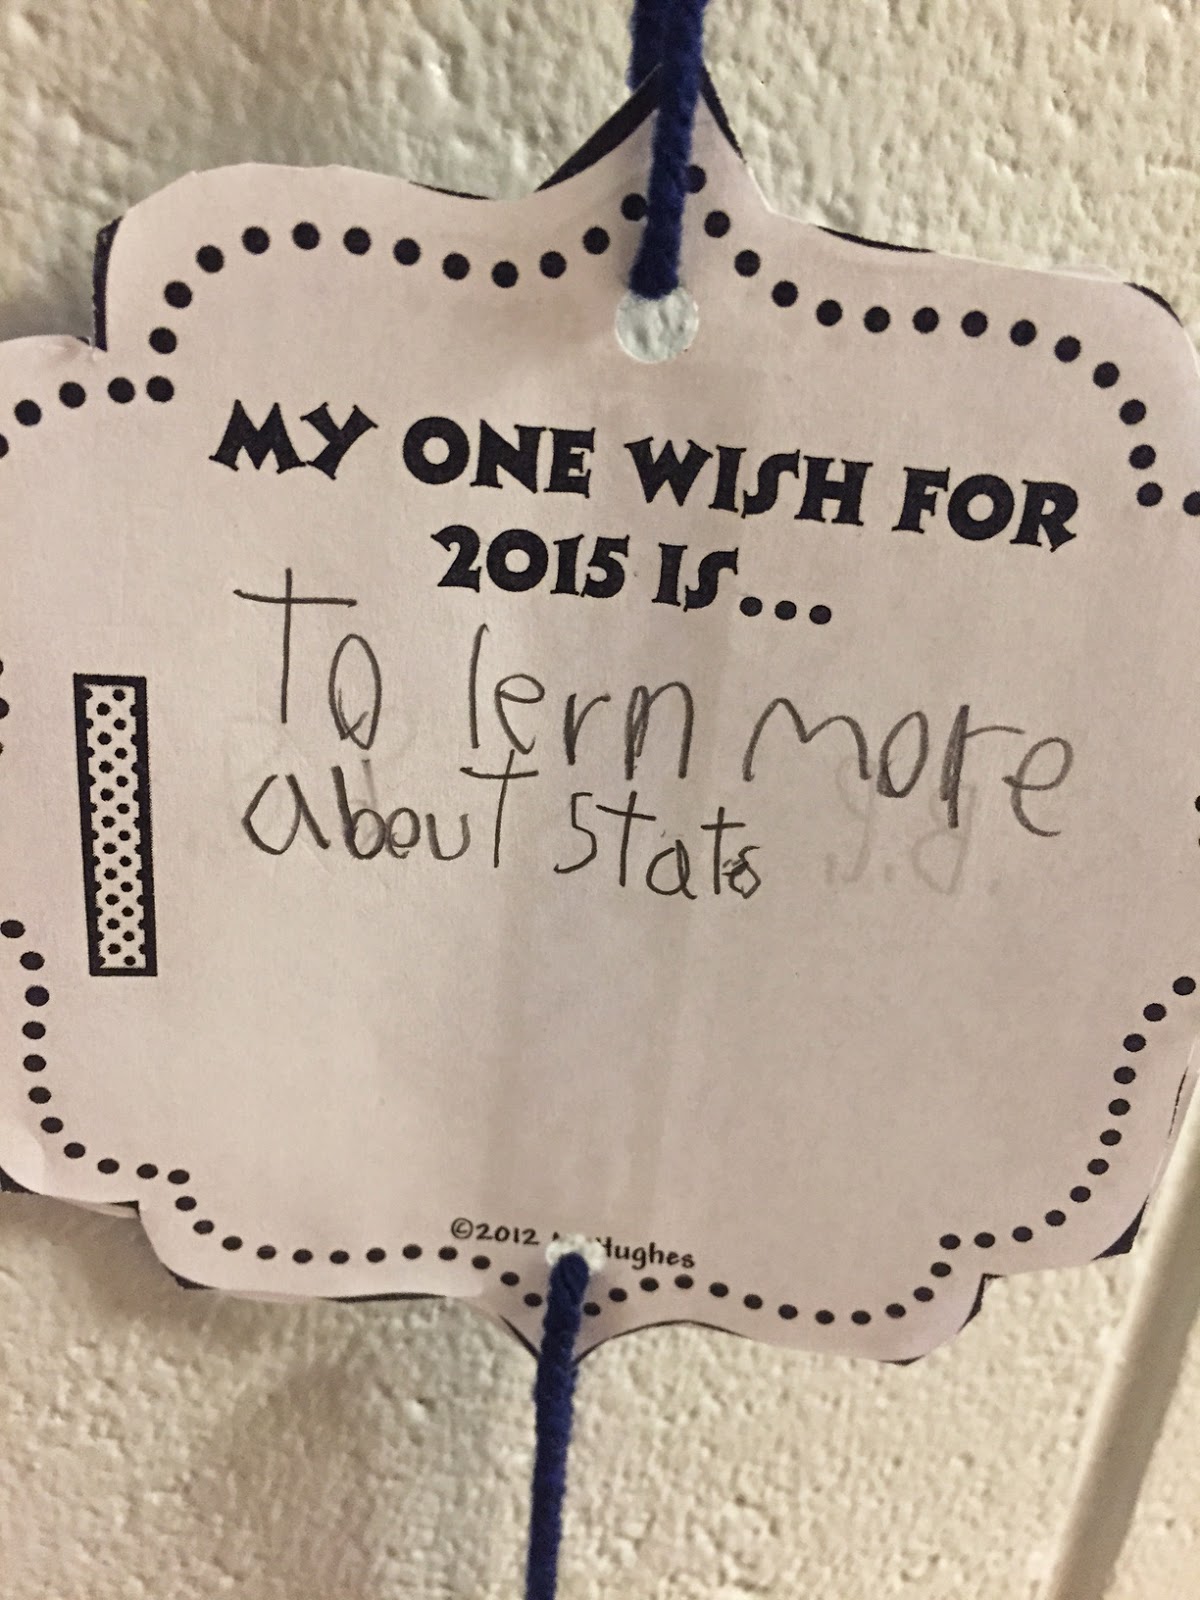 MY ONE WISH FOR
2015 IS...
To lern more
about stats
©2012 Hughes